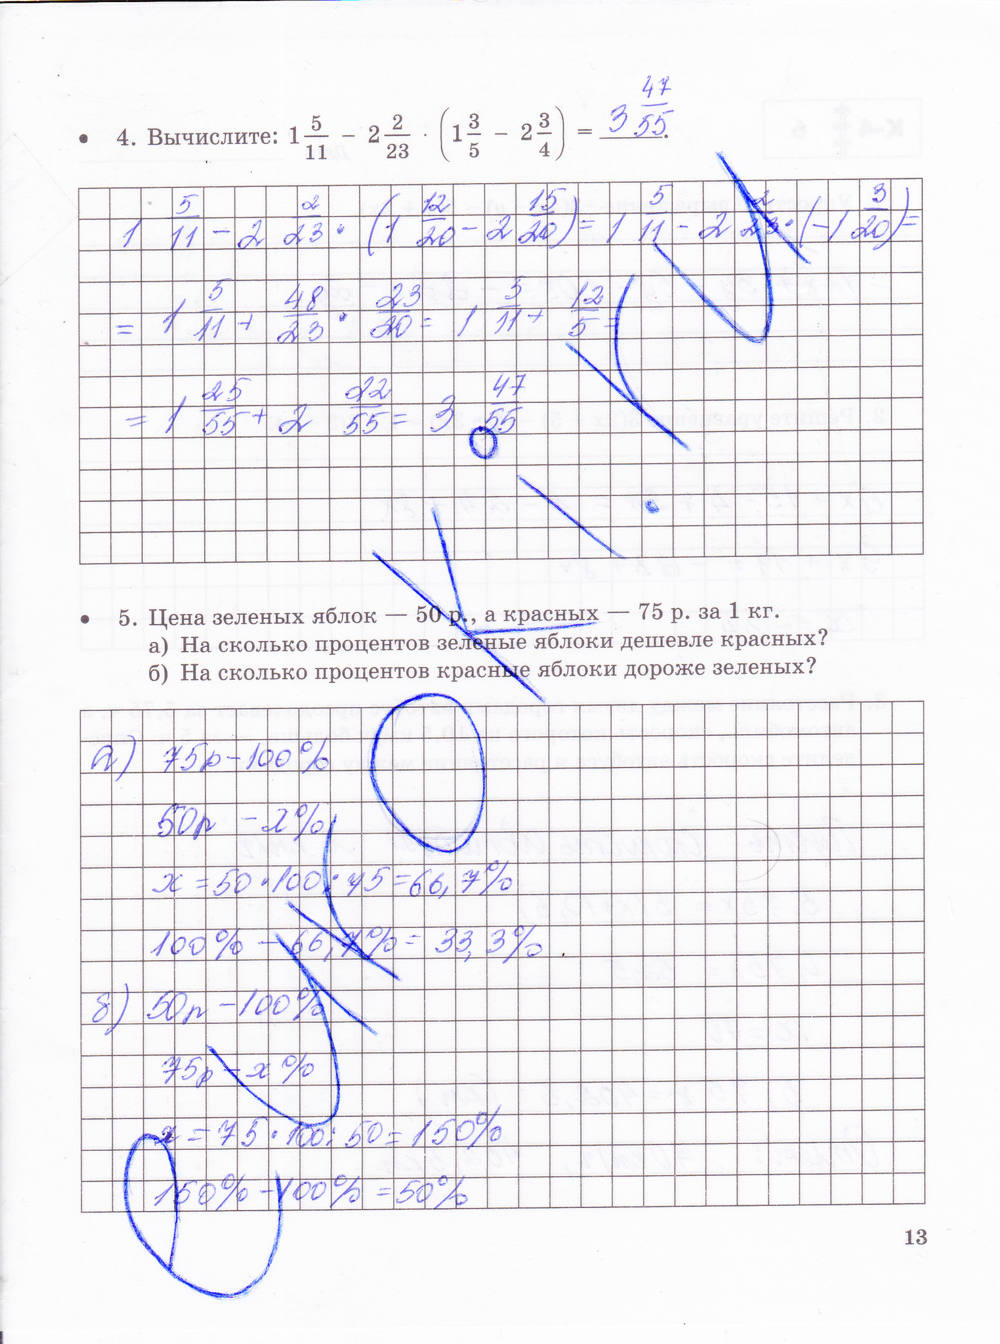 4. Вычислите: 1 5/11 − 2 2/23 · (1 3/5 − 2 3/4) = 3 47/55.
1 5/11 − 2 2/23 · (1 12/20 − 2 15/20) = 1 5/11 − 2 2/23 · (−1 3/20) =
= 1 5/11 + 48/23 · 23/20 = 1 5/11 + 12/5 =
= 1 25/55 + 2 22/55 = 3 47/55
5. Цена зеленых яблок — 50 р., а красных — 75 р. за 1 кг.
а) На сколько процентов зеленые яблоки дешевле красных?
б) На сколько процентов красные яблоки дороже зеленых?
а) 75р − 100%
50р − x%
x = 50 · 100 : 75 = 66,7%
100% − 66,7% = 33,3%
б) 50р − 100%
75р − x%
x = 75 · 100 : 50 = 150%
150% − 100% = 50%
13